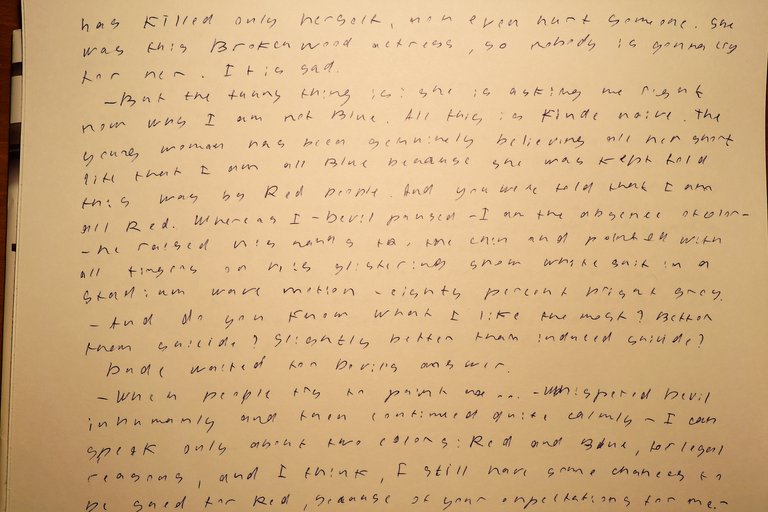 has killed only herself, non even hurt someone. She
was this Brokenwood actress, so nobody is gonna cry
for her. It is sad.
– But the funny thing is: she is asking me right
now why I am not Blue. All this is Kinde naive. The
young woman has been genuinely believing all her short
life that I am all Blue because she was kept told
this way by Red people. And you were told that I am
all Red. Whereas I – Devil paused – I am the absence of color –
– he raised his hands to the chin and pointed with
all fingers on his glistering snow white suit in a
stadium wave motion – eighty percent bright grey.
– And do you know what I like the most? Better
them suicide? Slightly better than induced suicide?
Dude waited for Devils answer.
– When people try to paint me... – whispered Devil
inhumanly and then continued quite calmly – I can
speak only about two colors: Red and Blue, for legal
reasons, and I think, I still have some chances to
be sued for Red, because of your expectations for me. –